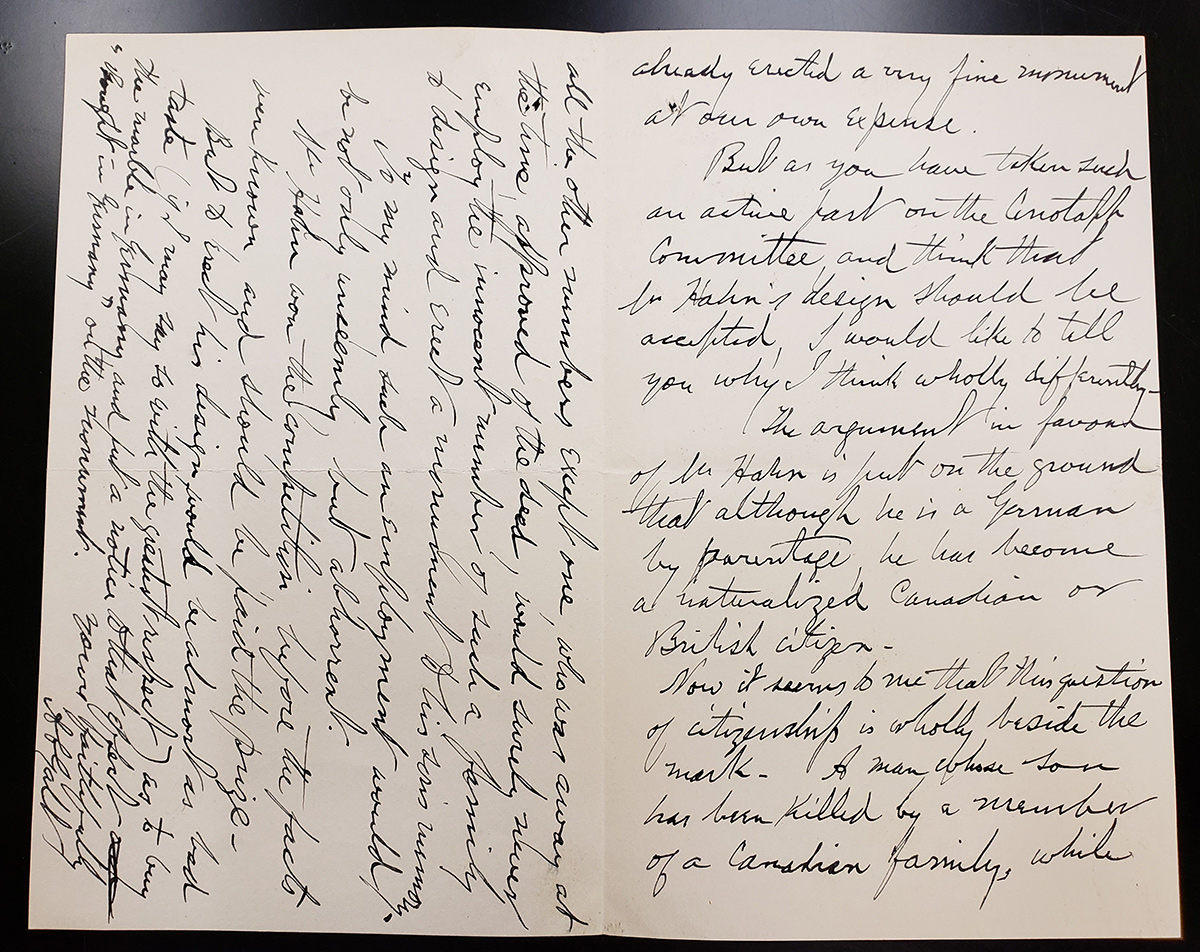 already erected a very fine monument
at our own expense.
But as you have taken such
an active part on the Cenotaph
Committee, and think that
Mr Hahn's design should be
accepted, I would like to tell
you why I think wholly differently -
The argument in favour
of Mr Hahn is put on the ground
that although he is a German
by parentage, he has become
a naturalized Canadian or
British citizen -
Now it seems to me that this question
of citizenship is wholly beside the
mark - A man whose son
has been killed by a member
of a Canadian family, while
all the other members except one, who was away at
the time, approved of the deed, would surely never
employ the innocent member of such a family
to design and erect a monument to his son's memory.
To my mind such an employment would
be not only unseemly, but abhorrent.
Mr Hahn won the competition, before the facts
were known and should be paid the prize -
But to erect his design would be almost as bad
taste (if I may say so with the greatest respect) as to buy
the marble in Germany and put a notice to that effect
& bought in Germany on the monument.
Yours faithfully